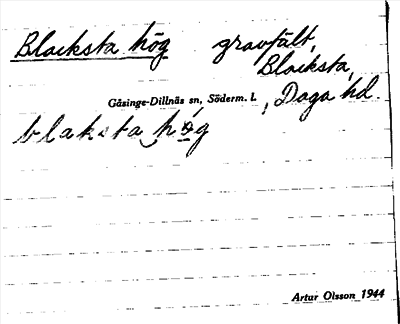 Blacksta hög gravfält,
Blacksta,
Gåsinge-Dillnäs sn, Söderm. l. , Daga hd.
blaksta hög
Artur Olsson 1944